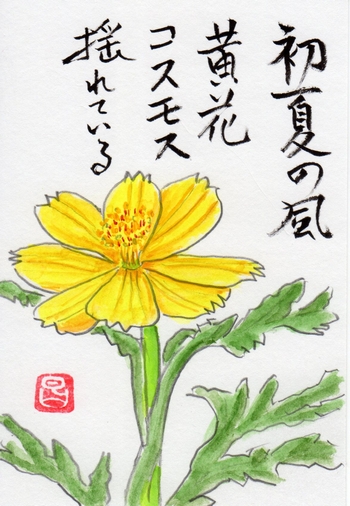 初夏の風
黄花
コスモス
揺れている